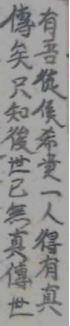 有吾狨侯希貴一人得有真
傳矣只知後世已無真傳世